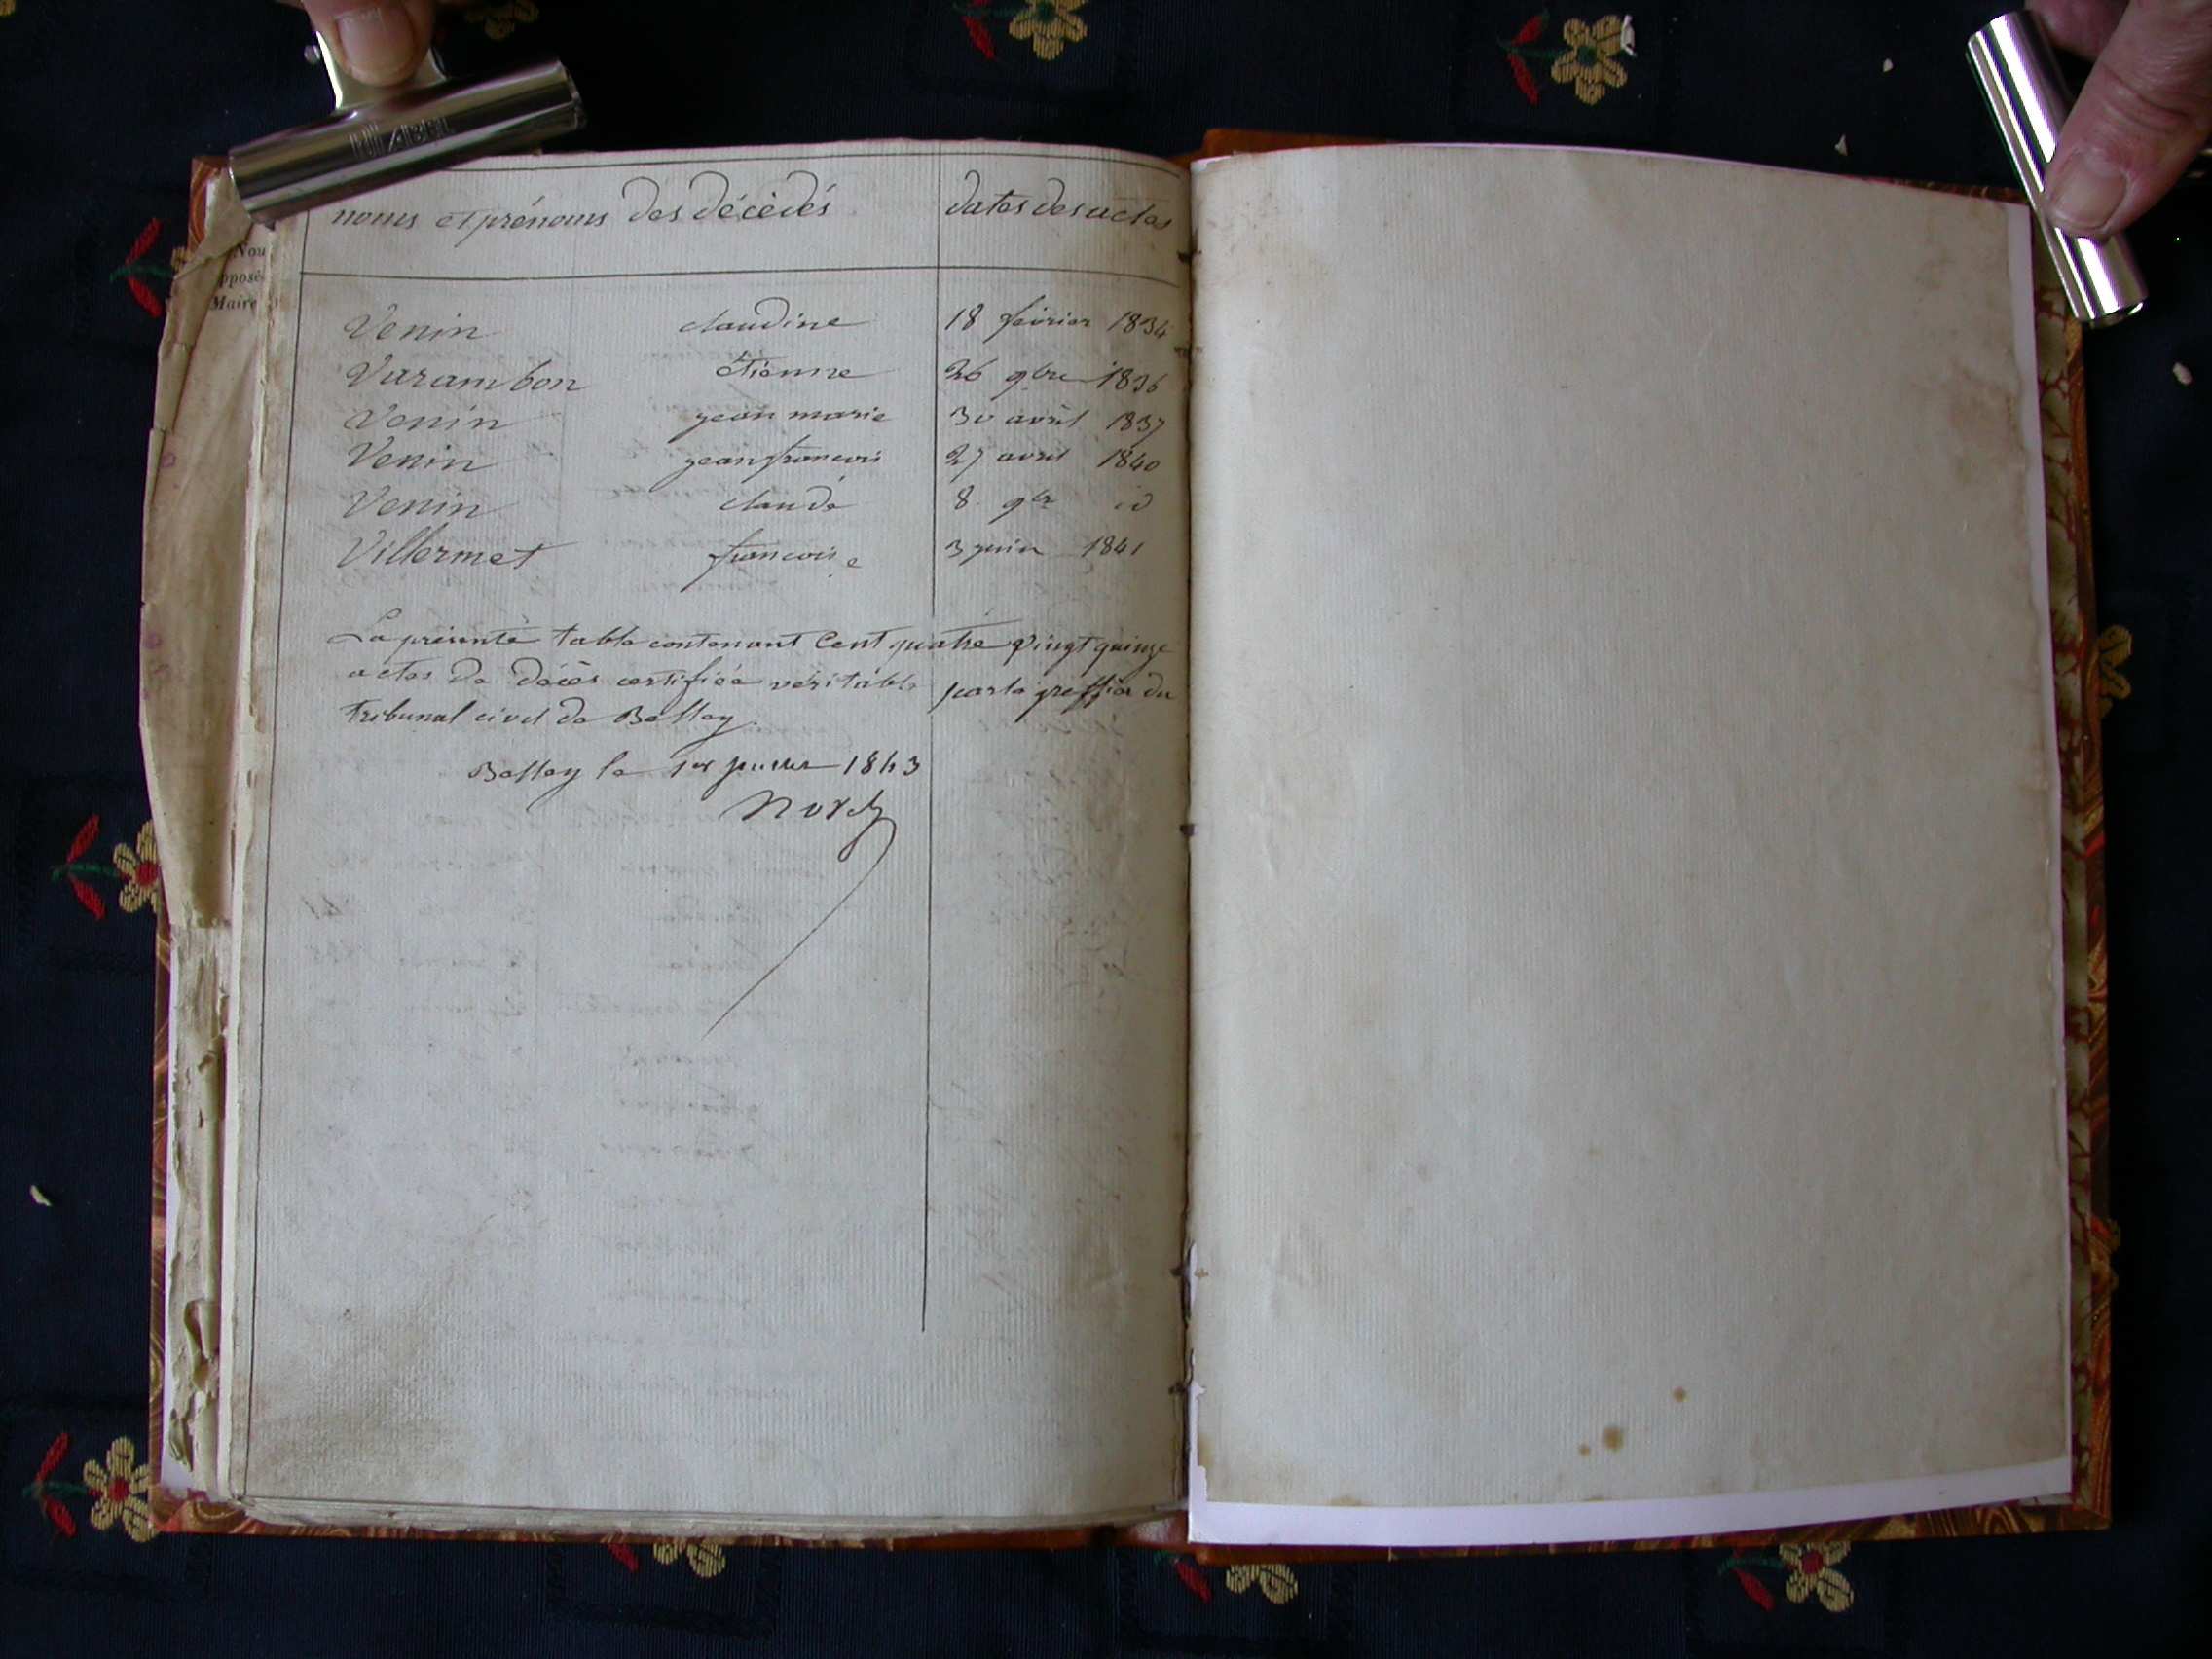 noms et prénoms des décèdés dates des actes
Nou
pposé
Maire
Venin claudine 18 février 1834
Varambon étienne 26 9bre 1836
Venin jean marie 30 avril 1837
Venin jean francois 27 avril 1840
Venin claude 8 9bre id
Villermet francoise 3 juin 1841
La présente table contenant Cent quatre vingt quinze
actes de décès certifiée véritable par le greffier du
tribunal civil de Belley.
Belley le 1er 1843